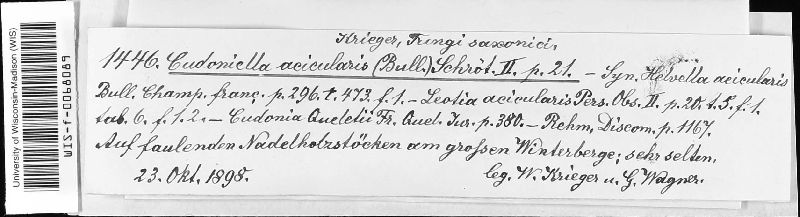 University of Wisconsin-Madison (WIS)
WIS-f-0068089
Krieger, Fungi saxonici.
1446. Cudoniella acicularis (Bull.) Schröt. II. p. 21. – Syn. Helvella acicularis
Bull. Champ. franç. p. 296. t. 473. f. 1. – Leotia acicularis Pers. Obs. II. p. 20. t. 5. f. 1.
tab. 6. f. 1. 2. – Cudonia Queletii Fr. Quel. Jur. p. 380. – Rehm, Discom. p. 1167.
Auf faulenden Nadelholzstöcken am grossen Winterberge; sehr selten.
23. Okt. 1898. leg. W. Krieger u. G. Wagner.